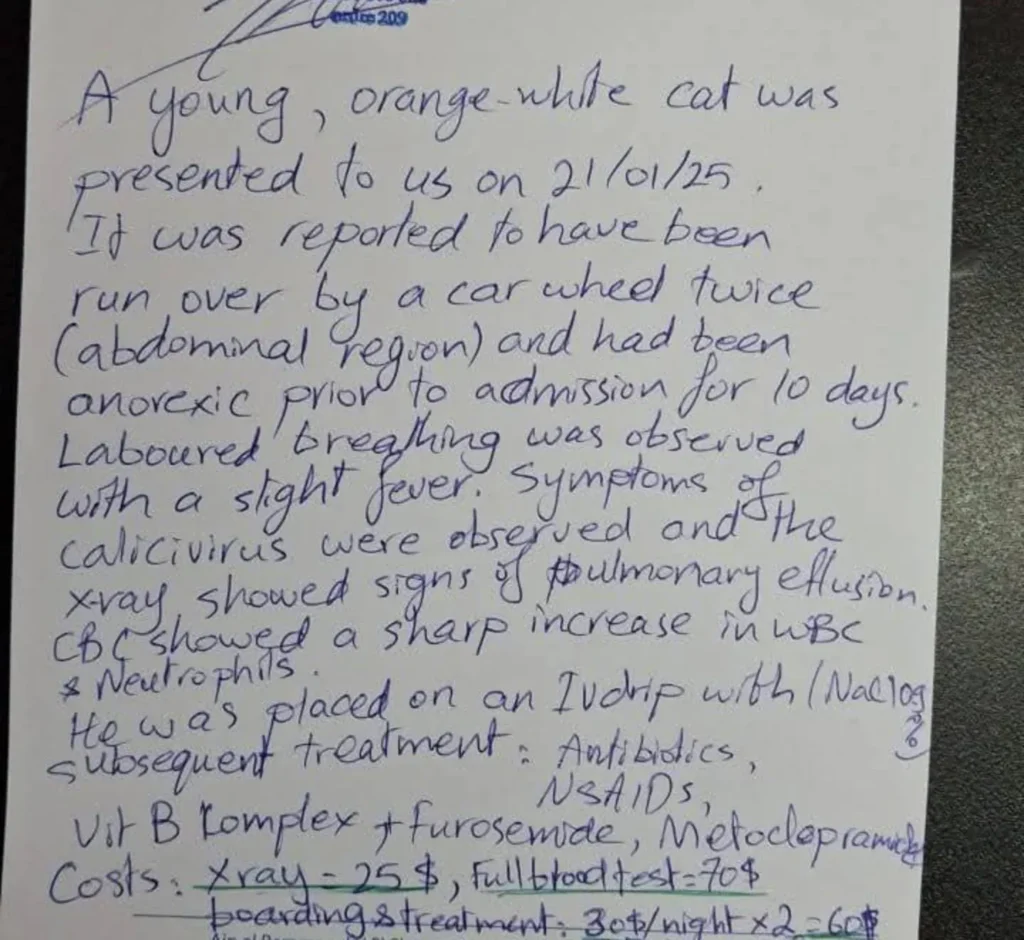 209
A young, orange-white cat was
presented to us on 21/01/25.
It was reported to have been
run over by a car wheel twice
(abdominal region) and had been
anorexic prior to admission for 10 days.
Laboured breathing was observed
with a slight fever. Symptoms of
calicivirus were observed and the
x-ray showed signs of pulmonary effusion.
CBC showed a sharp increase in WBC
& Neutrophils.
He was placed on an IV drip with (NaCl 0,9
%)
Subsequent treatment: Antibiotics,
NSAIDs,
Vit B Komplex + furosemide, Metoclopramide
Costs: Xray = 25$, Full blood test = 70$
boarding & treatment: 30$/night x2 = 60$